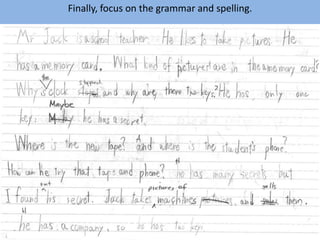 Finally, focus on the grammar and spelling.
Mr Jack is a school teacher. He likes to take pictures. He
has a memory card. What kind of pictures are in the memory card?
the stopped
Why is clock and why are there two keys? He has only one
Maybe
key. he has a secret.
Where is the new tape? And where is the student's phone?
How can he try that tape and phone? he has many secrets but
out pictures of sells
I found his secret. Jack takes machines and them.
he has a company, so he has two keys